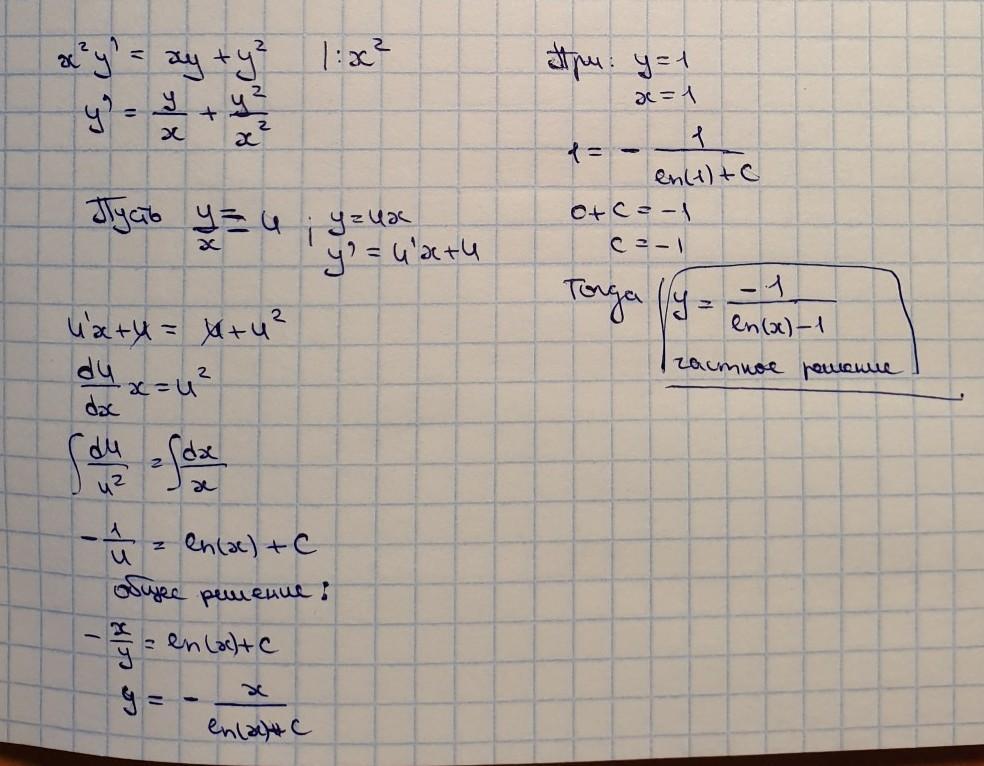 x²y' = xy + y² |: x²
y' = y/x + y²/x²
Пусть y/x = u ; y = ux
y' = u'x + u
u'x + u = u + u²
du/dx x = u²
∫ du/u² = ∫ dx/x
- 1/u = ln(x) + C
общее решение:
- x/y = ln(x) + C
y = - x/(ln(x) + C)
При: y = 1
x = 1
1 = - 1/(ln(1) + C)
0 + C = -1
C = -1
Тогда y = -1/(ln(x) - 1)
частное решение